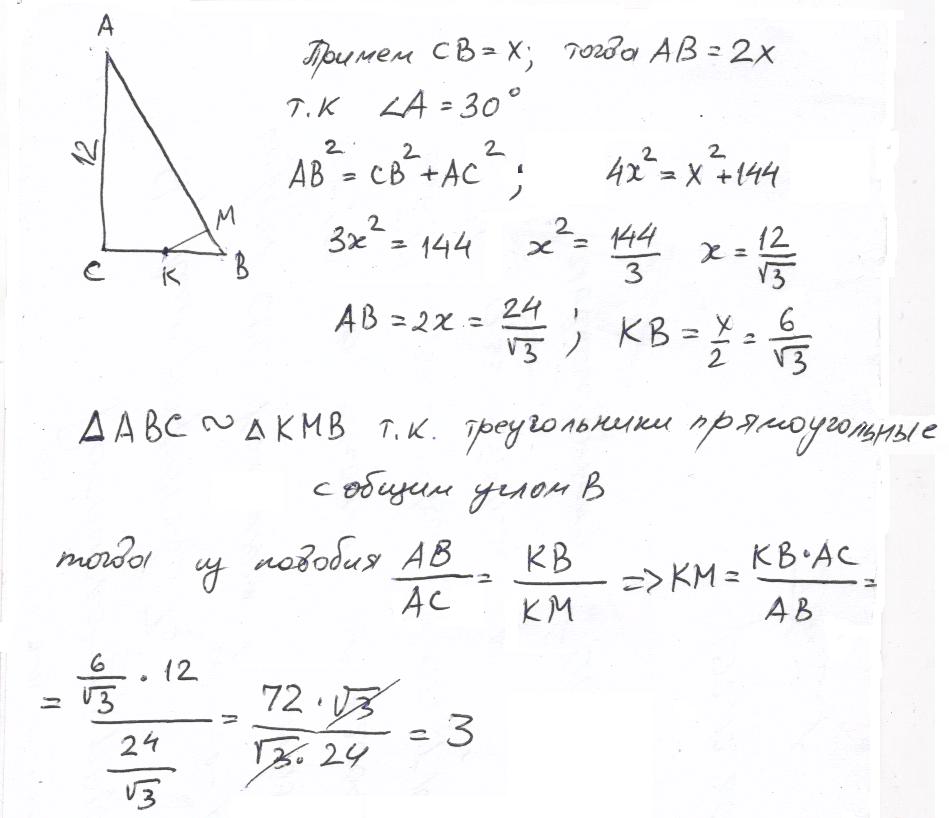 A
12
C
K
M
B
Примем CB = x; тогда AB = 2x
т.к ∠A = 30°
AB² = CB² + AC² ; 4x² = x² + 144
3x² = 144 x² = 144/3 x = 12/√3
AB = 2x = 24/√3 ; KB = x/2 = 6/√3
ΔABC ~ ΔKMB т.к. треугольники прямоугольные
с общим углом B
тогда из подобия AB/AC = KB/KM => KM = KB·AC/AB =
= (6/√3 · 12)/(24/√3) = (72·√3)/(√3·24) = 3